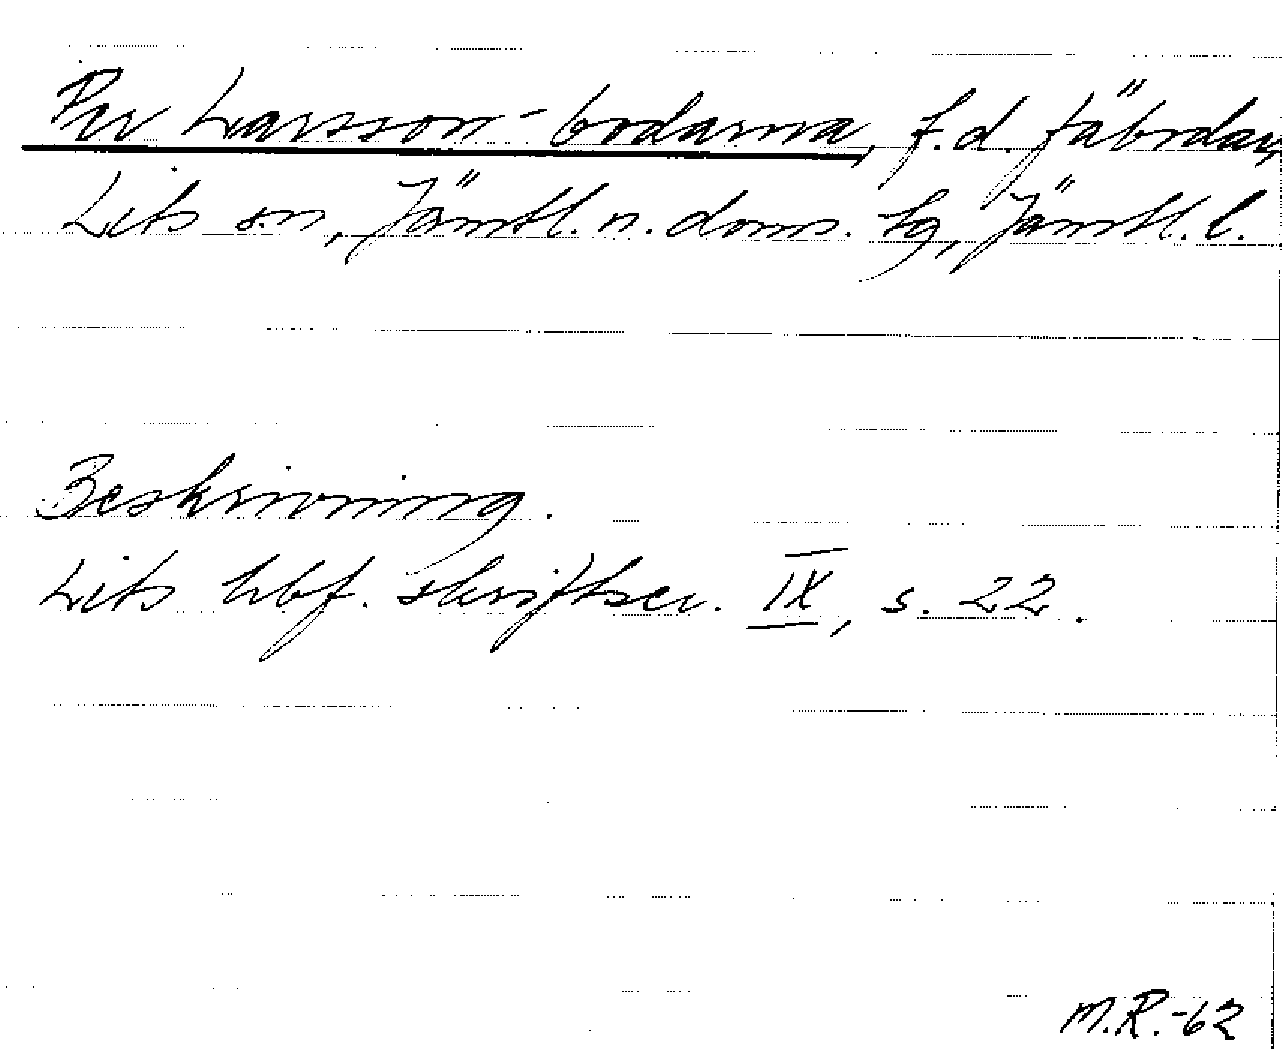 Per Larsson-bodarna, f.d. fäbodar,
Lits sn, Jämtl. n. doms. tg, Jämtl. l.
Beskrivning.
Lits hbf. skriftser. IX, s. 22.
M.R.-62